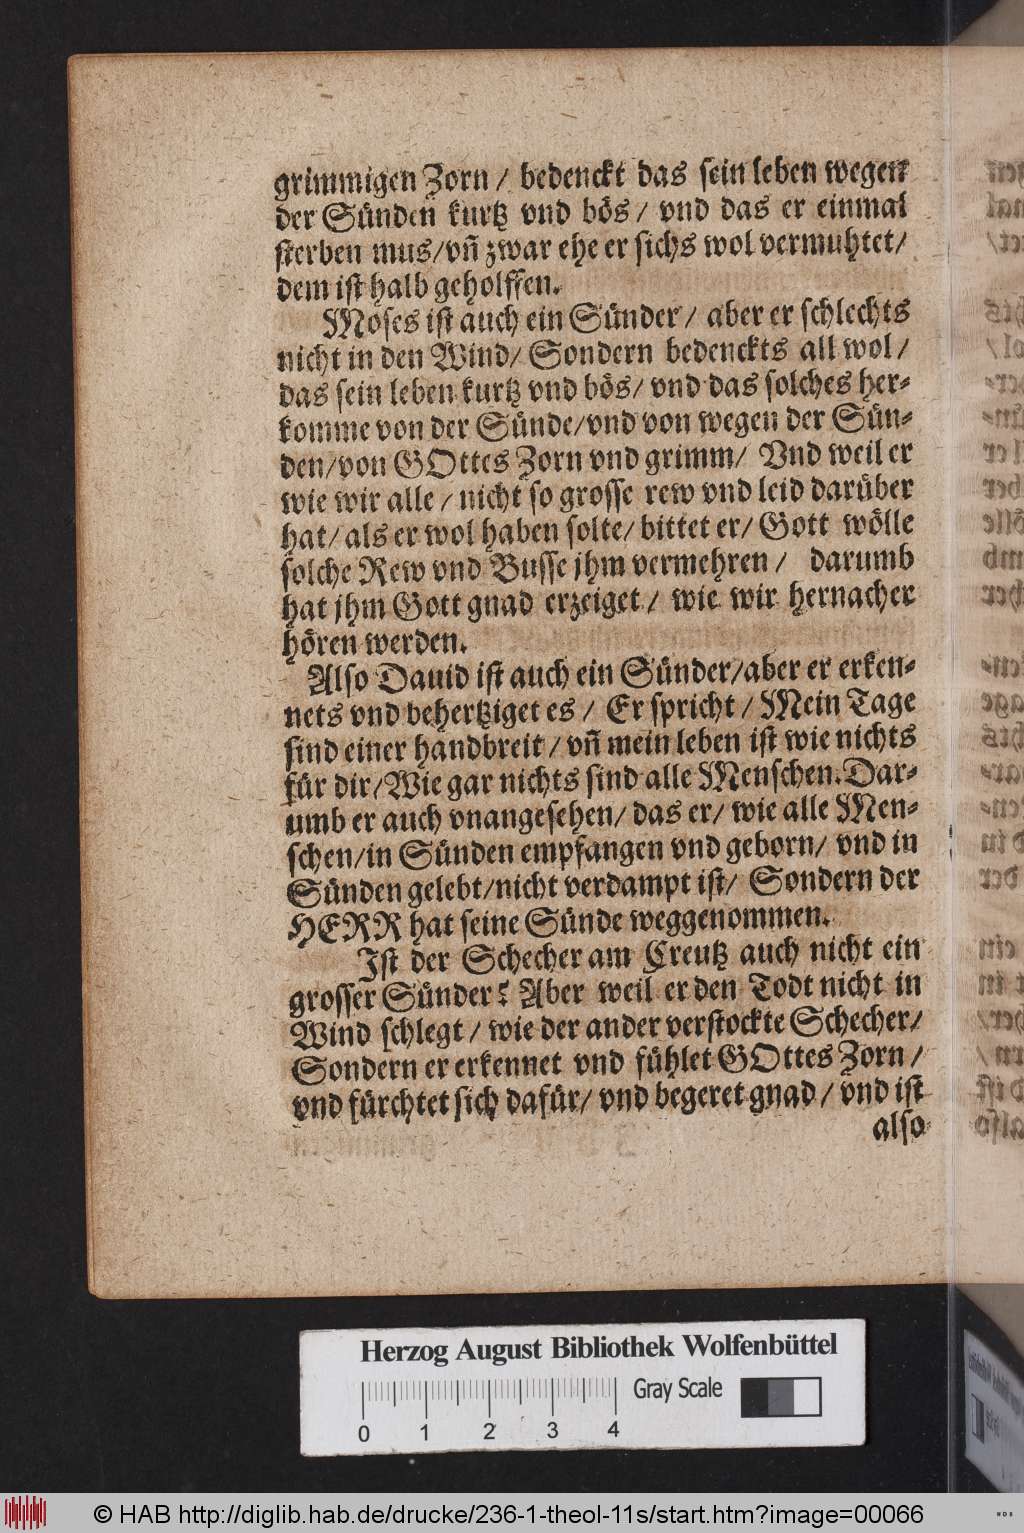 grimmigen Zorn / bedenckt das sein leben wegen
der Sünden kurtz vnd bös / vnd das er einmal
sterben mus/vñ zwar ehe er sichs wol vermuhtet/
dem ist halb geholffen.
Moses ist auch ein Sünder / aber er schlechts
nicht in den Wind/ Sondern bedenckts all wol /
das sein leben kurtz vnd bös/ vnd das solches her-
komme von der Sünde/vnd von wegen der Sün-
den/von GOttes Zorn vnd grimm/ Vnd weil er
wie wir alle / nicht so grosse rew vnd leid darüber
hat/ als er wol haben solte/ bittet er/ Gott wölle
solche Rew vnd Busse jhm vermehren / darumb
hat jhm Gott gnad erzeiget / wie wir hernacher
hören werden.
Also Dauid ist auch ein Sünder/aber er erken-
nets vnd behertziget es / Er spricht / Mein Tage
sind einer handbreit / vñ mein leben ist wie nichts
für dir/Wie gar nichts sind alle Menschen. Dar-
umb er auch vnangesehen/ das er/ wie alle Men-
schen/in Sünden empfangen vnd geborn/ vnd in
Sünden gelebt/nicht verdampt ist/ Sondern der
HERR hat seine Sünde weggenommen.
Ist der Schecher am Creutz auch nicht ein
grosser Sünder? Aber weil er den Todt nicht in
Wind schlegt / wie der ander verstockte Schecher/
Sondern er erkennet vnd fühlet GOttes Zorn /
vnd fürchtet sich dafür/ vnd begeret gnad / vnd ist
also
Herzog August Bibliothek Wolfenbüttel
0 1 2 3 4 Gray Scale
© HAB http://diglib.hab.de/drucke/236-1-theol-11s/start.htm?image=00066